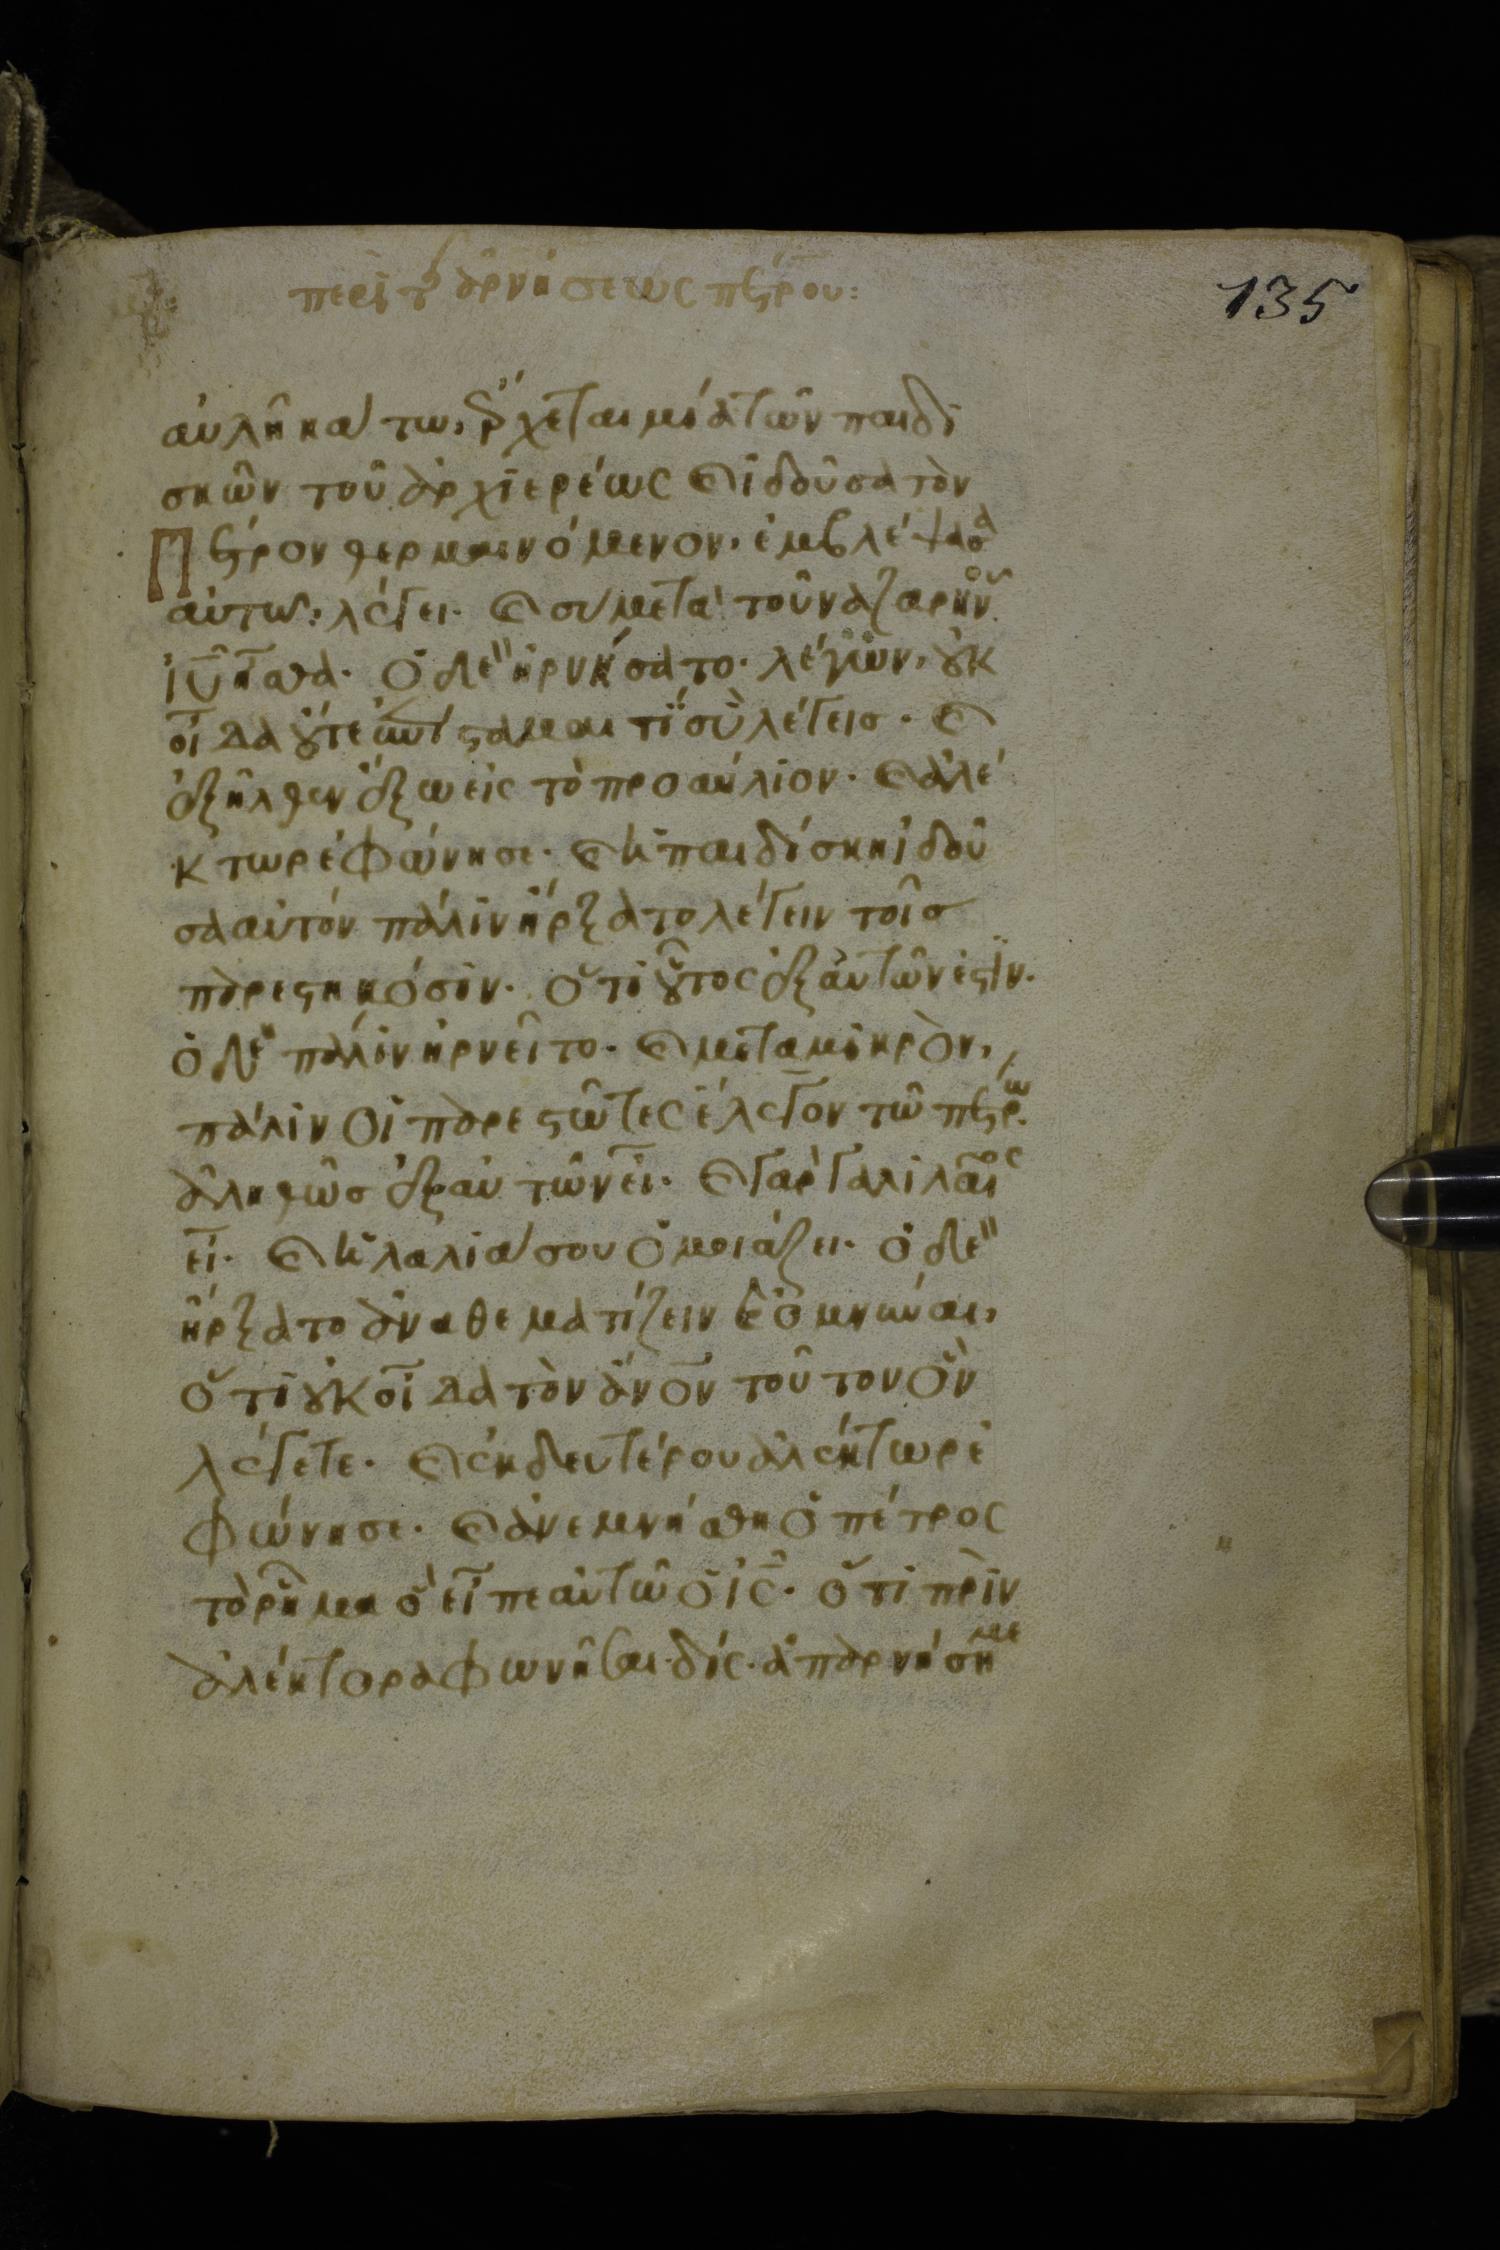 περὶ τ(ῆς) ἀρνήσεως πέτρου:
135
αὐλῆ κάτω, ἔρχεται μία τῶν παιδι
σκῶν τοῦ ἀρχιερέως καὶ ἰδοῦσα τὸν
Πέτρον θερμαινόμενον, ἐμβλέψασα
αὐτῶ, λέγει. καὶ σὺ μετὰ τοῦ ναζαρηνοῦ
ἰῦ ἦσθα. ὁ δὲ ἠρνήσατο. λέγων, οὐκ
οἶδα οὔτε ἐπίσταμαι τί σὺ λέγεισ. καὶ
ἐξῆλθεν ἔξω εἰς τὸ προαύλιον. καὶ ἀλέ
κτωρ ἐφώνησε. καὶ ἡ παιδίσκη ἰδοῦ
σα αὐτόν πάλιν ἤρξατο λέγειν τοῖσ
παρεστηκόσιν. ὅτι οὗτος ἐξ αὐτῶν ἐστὶν.
ὁ δὲ πάλιν ἠρνεῖτο. καὶ μετὰ μικρὸν,
πάλιν οἱ παρεστῶτες ἔλεγον τῶ πέτρω.
ἀληθῶσ ἐξ αὐτῶν εἶ. καὶ γὰρ γαλιλαῖος
εἶ. καὶ ἡ λαλιά σου ὁμοιάζει. ὁ δὲ
ἤρξατο ἀναθεματίζειν καὶ ὀμνύναι,
ὅτι οὐκ οἶδα τὸν ἄνον τοῦτον ὃν
λέγετε. καὶ ἐκ δευτέρου ἀλέκτωρ ἐ
φώνησε. καὶ ἀνεμνήσθη ὁ πέτρος
τὸ ῥῆμα ὃ εἶπε αὐτῶ ὁ ἰς. ὅτι πρὶν
ἀλέκτορα φωνῆσαι δίς. ἀπαρνήσῃ με